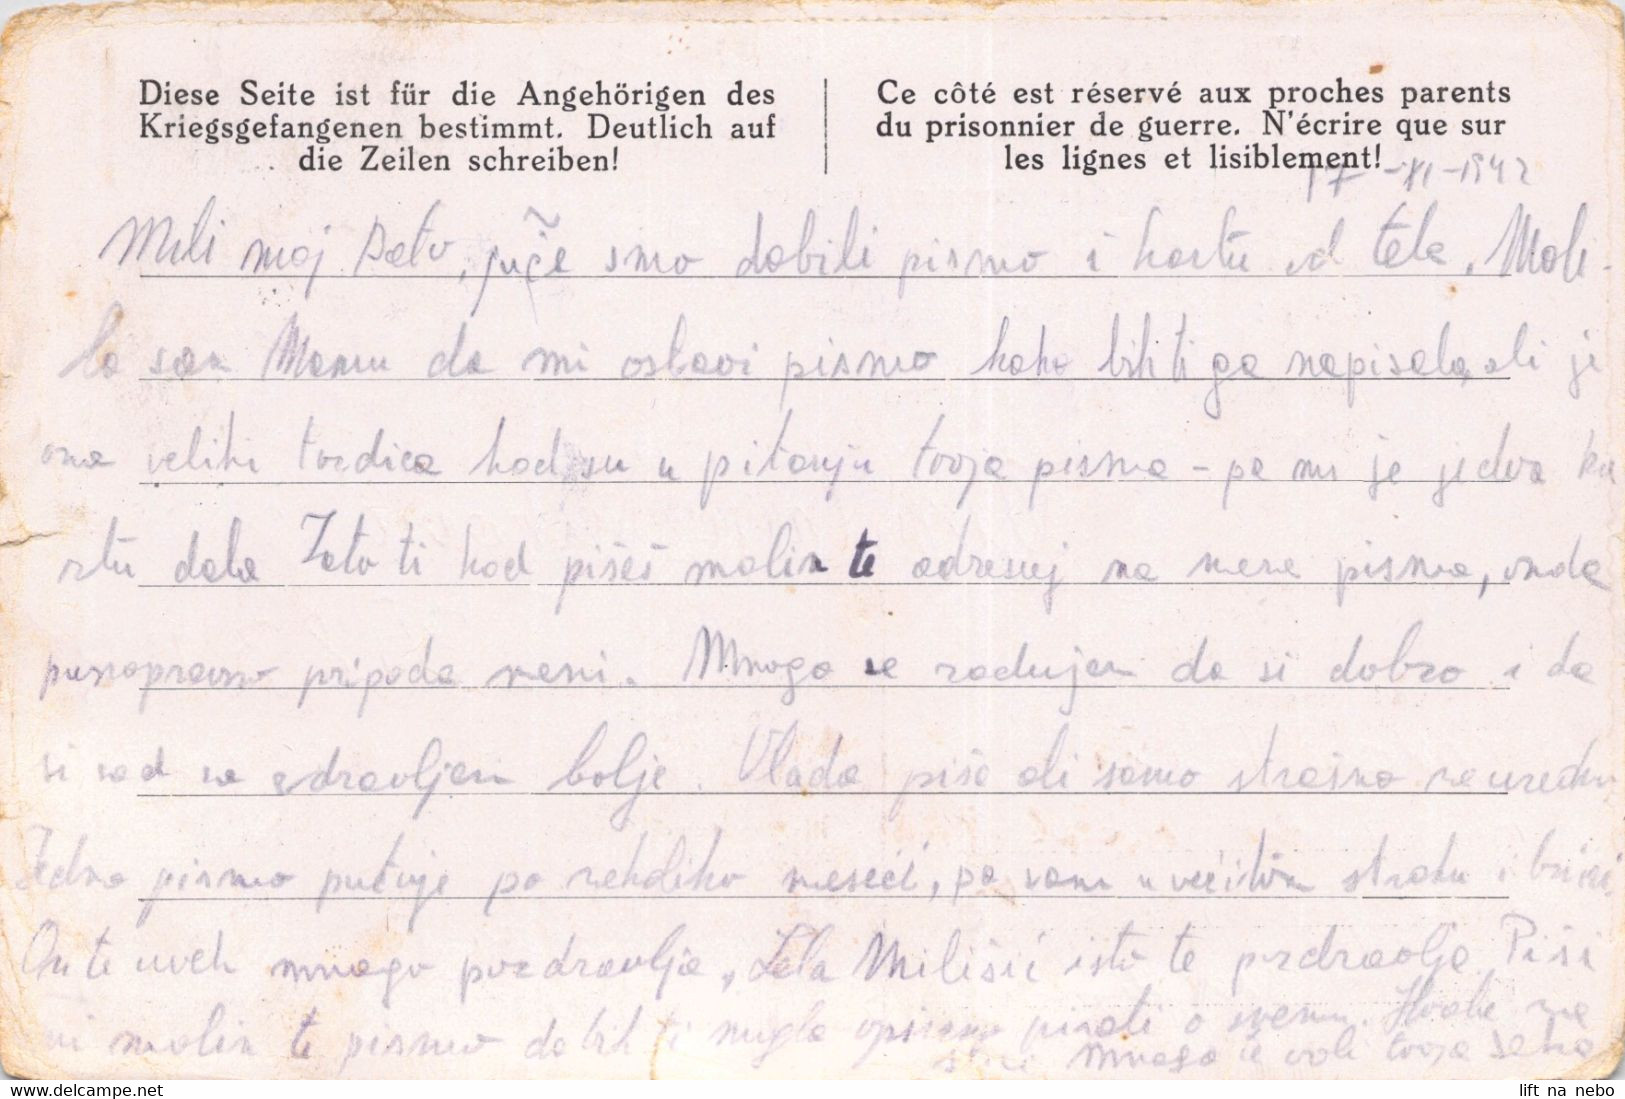 Diese Seite ist für die Angehörigen des
Kriegsgefangenen bestimmt. Deutlich auf
die Zeilen schreiben!
Ce côté est réservé aux proches parents
du prisonnier de guerre. N'écrire que sur
les lignes et lisiblement!
17-XI-1942
Mili moj Bato, juče smo dobili pismo i kartu od tebe. Moli-
la sam Mamu da mi ostavi pismo kako bih ti ga napisala, ali je
ona veliki tvrdica kad su u pitanju tvoja pisma - pa mi je jedva ka
rtu dala Zato ti kad pišeš molim te adresuj na mene pisma, onda
punopravno pripada meni. Mnogo se radujem da si dobro i da
si sad sa zdravljem bolje. Vlada piše ali samo strašno neuredno
Jedno pismo putuje po nekoliko meseci, pa smo u večitom strahu i brizi.
On te uvek mnogo pozdravlja, Lela Milišić isto te pozdravlja. Piši
mi molim te pismo da bih ti mogla opširno pisati o svemu. Hvala na
mnogo te voli tvoja seka
lift na nebo